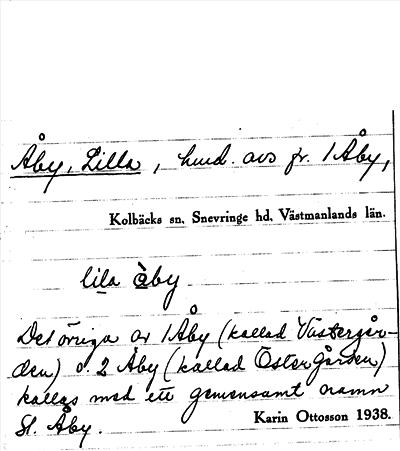 Åby, Lilla, hmd. avs fr. 1 Åby,
Kolbäcks sn. Snevringe hd. Västmanlands län.
lila åby
Det övriga av 1 Åby (kallad Västergår-
den) o. 2 Åby (kallad Östergården)
kallas med ett gemensamt namn
St. Åby.
Karin Ottosson 1938.